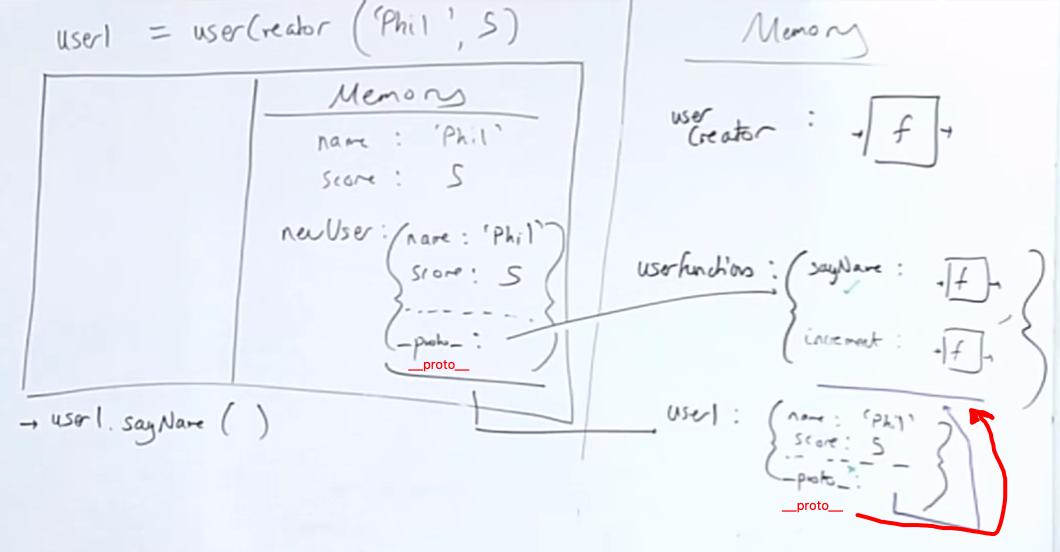 user1 = userCreator ('Phil', 5)
Memory
name : 'Phil'
score : 5
newUser : { name : 'Phil'
score : 5
__proto__ :
__proto__
}
→ user1.sayName ( )
Memory
user
Creator : f
userfunctions : { sayName : f
increment : f }
user1 : { name : 'Phil'
score : 5
__proto__ :
__proto__
}